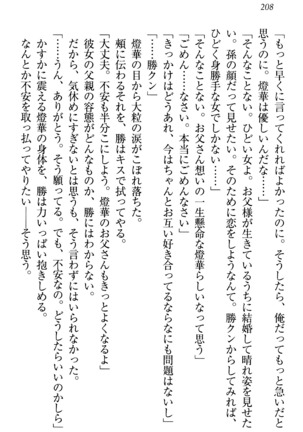 208
「もっと早くに言ってくれればよかったのに。そうしたら、俺だってもっと急いだと
思うのに。燈華は優しいんだな……」
「そんなことない。ひどい女よ。お父様が生きているうちに結婚して晴れ姿を見せた
い。孫の顔だって見せたい。そのために恋をしようだなんて。勝クンからしてみれば、
ひどく身勝手な女でしかない……」
「そんなことない。お父さん想いの一生懸命な燈華らしいなって思う」
「ごめん……なさい。本当にごめんなさい」
「きっかけはどうあれ、今はちゃんとお互い好き合ってるならなにも問題はないし」
「……勝クン」
燈華の目から大粒の涙がこぼれ落ちた。
頬に伝わるそれを、勝はキスで拭ってやる。
「大丈夫。不安も半分こにしよう。燈華のお父さんもきっとよくなるよ」
彼女の父親の容態がどんなものか、勝にはわからない。
だから、気休めにすぎないとは思うも、そう言わずにはいられなかった。
「……うん、ありがとう。そう願ってる。でも、不安なの。どうしたらいいのかしら」
かすかに震える燈華の身体を、勝は力いっぱい抱きしめる。
なんとか不安を取っ払ってやりたい――そう思う。